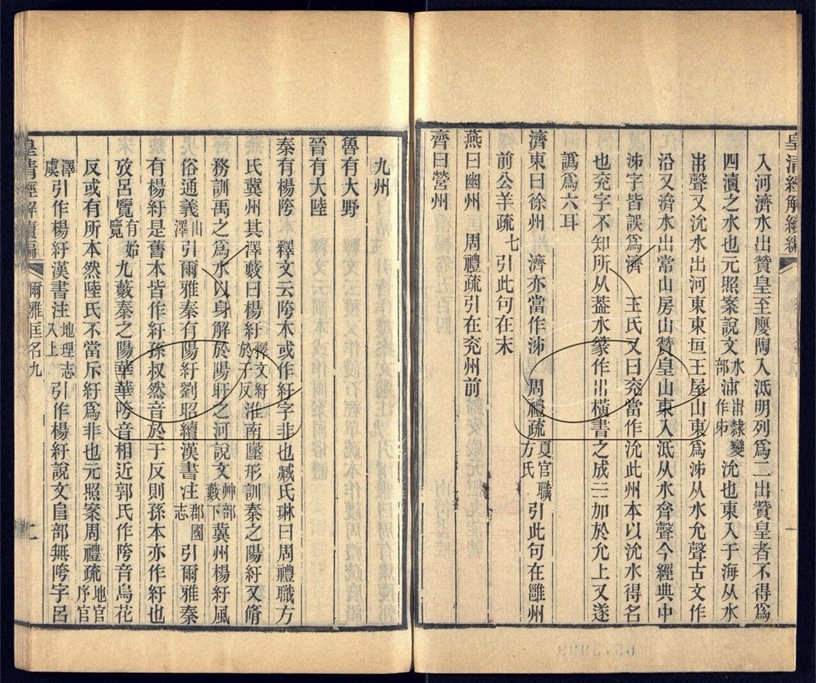 皇清經解續編
入河濟水出贊皇至廮陶入泜明列爲二出贊皇者不得爲
四瀆之水也元照案說文水部沛作泲隸變沇也東入于海从水
𠂔聲又沇水出河東東垣王屋山東爲泲从水允聲古文作
沿又濟水出常山房山贊皇山東入泜从水齊聲今經典中
泲字皆誤爲濟 王氏又曰兗當作沇此州本以沇水得名
也兗字不知所从葢水篆作巛橫書之成三加於允上又遂
譌爲六耳
濟東曰徐州 濟亦當作泲 周禮疏夏官職方氏引此句在雝州
前公羊疏七引此句在末
燕曰幽州 周禮疏引在兗州前
齊曰營州
九州
魯有大野
晉有大陸
秦有楊陓 釋文云陓本或作紆字非也臧氏琳曰周禮職方
氏冀州其澤藪曰楊紆釋文紆於于反淮南墬形訓秦之陽紆又脩
務訓禹之爲水以身解於陽盱之河說文艸部藪下冀州楊紆風
俗通義山澤引爾雅秦有陽紆劉昭續漢書注郡國志引爾雅秦
有楊紆是舊本皆作紆孫叔然音於于反則孫本亦作紆也
攷呂覽有始覽九藪秦之陽華華陓音相近郭氏作陓音烏花
反或有所本然陸氏不當斥紆爲非也元照案周禮疏地官序官
澤虞引作楊紆漢書注地理志八上引作楊紆說文𨸏部無陓字呂
皇清經解續編
爾雅匡名九